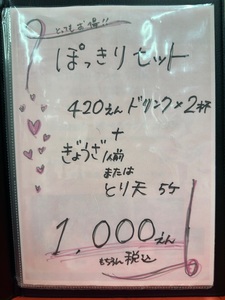 とってもお得!!
ぽっきりセット
420えん ドリンク×2杯
+
ぎょうざ1人前
または
とり天 5ケ
1,000えん
もちろん税込